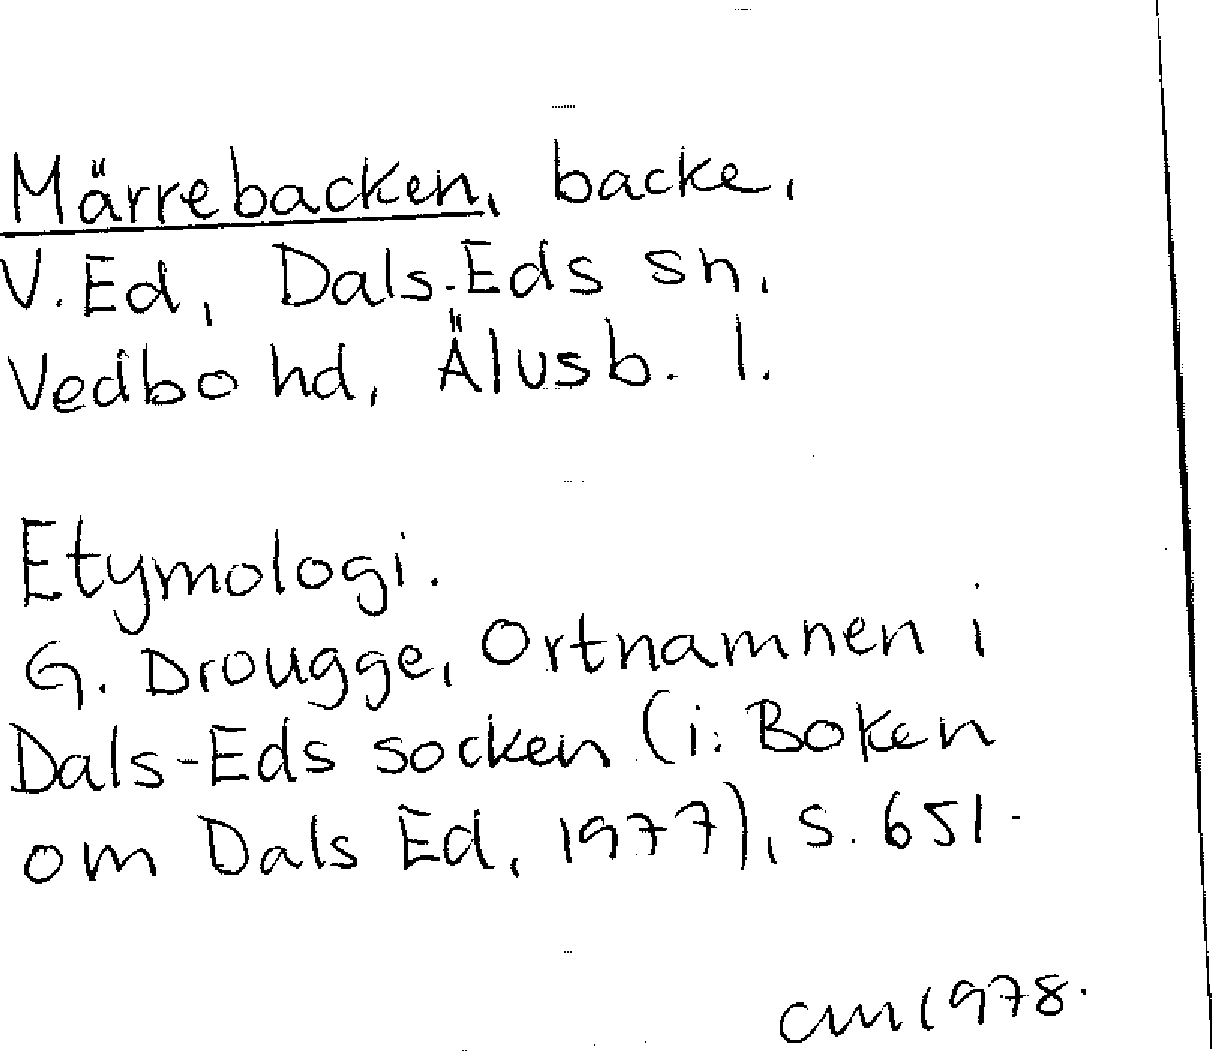 Märrebacken, backe,
V. Ed, Dals-Eds sn,
Vedbo hd, Älvsb. l.
Etymologi.
G. Drougge, Ortnamnen i
Dals-Eds socken (i: Boken
om Dals Ed, 1977), s. 651.
CM 1978.